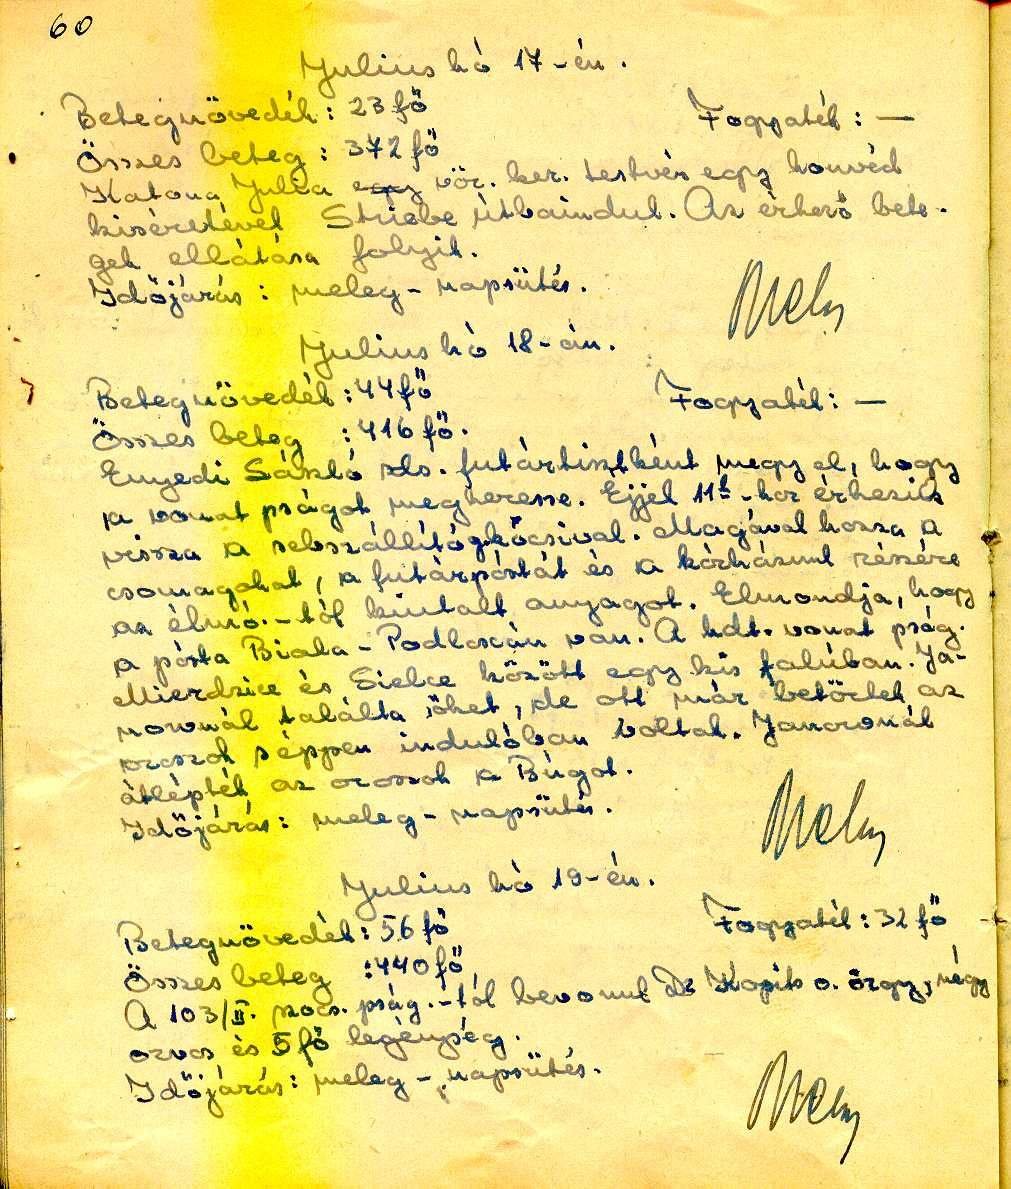 60
Julius hó 17-én.
Betegnövedék: 23 fő Fogyaték: —
Összes beteg: 372 fő
Katona Julia egy vör. ker. testvér egy honvéd
kiséretével útbaindul. Az érkező bete-
gek ellátása folyik.
Időjárás: meleg - napsütés.
Julius hó 18-án.
Betegnövedék: 44 fő Fogyaték: —
Összes beteg: 416 fő.
Enyedi László zls. futártisztként megy el, hogy
a vonat pságot megkeresse. Éjjel 11h-kor érkezik
vissza a sebszállítógkocsival. Magával hozza a
csomagokat, a futárpóstát és a kórházunk részére
az élmó.-tól kiutalt anyagot. Elmondja, hogy
a pósta Biala-Podloscán van. A hdt. vonat pság.
Mierdzice és Sielce között egy kis falúban. Ja-
nownál találta őket, de ott már betörtek az
oroszok s éppen indulóban voltak. Janownál
átlépték az oroszok a Búgot.
Időjárás: meleg - napsütés.
Julius hó 19-én.
Betegnövedék: 56 fő Fogyaték: 32 fő
Összes beteg: 440 fő
A 103/II. szocs. pság.-tól bevonul Dr Kopits o. őrgy, négy
orvos és 5 fő legénység.
Időjárás: meleg - napsütés.